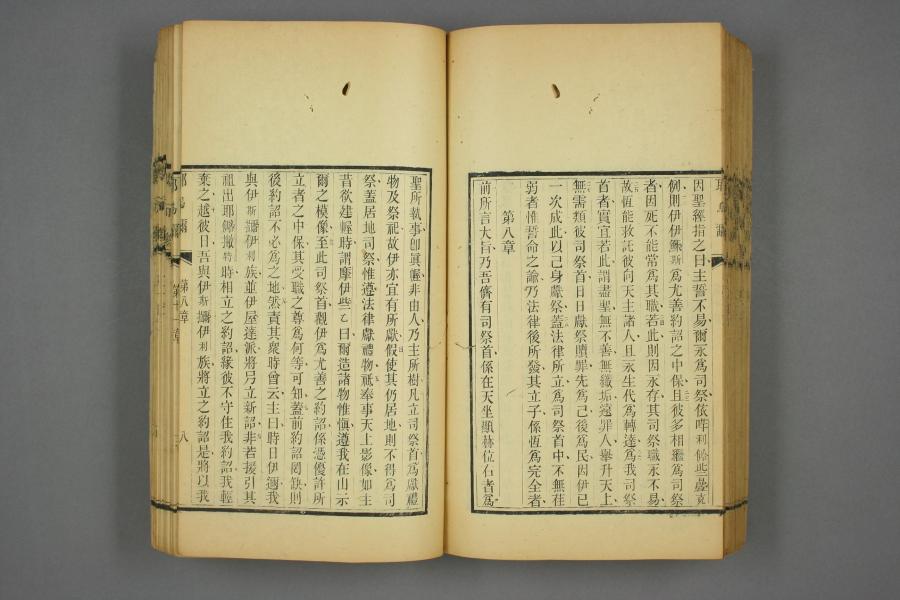 因聖經指之曰主誓不易爾永爲司祭依
例則伊伊穌斯爲尤善約詔之中保且彼多相繼爲司祭
者因死不能常爲其職若此則因永存其司祭職永不易
故恆能救託彼向天主諸人且永生代爲轉達爲我司祭
首者實宜若此謂盡聖無不善無纖垢遠罪人舉升天上
無需類彼司祭首日日獻祭贖罪先爲己後爲民因伊已
一次成此以己身獻祭蓋法律所立爲司祭首中不無荏
弱者惟誓命之諭乃法律後所發其立子係恆爲完全者
第八章
前所言大旨乃吾儕有司祭首係在天坐顯赫位右者爲
聖所執事卽眞幄非由人乃主所樹凡立司祭首爲獻禮
物及祭祀故伊亦宜有所獻假使其仍居地則不得爲司
祭蓋居地司祭惟遵法律獻禮物祗奉事天上影像如主
昔欲建幄時謂摩伊些乙曰爾造諸物惟愼遵我在山示
爾之模像至此司祭首觀伊爲尤善之約詔係憑優許所
立者之中保其受職之尊爲何等可知蓋前約詔罔缺則
後約詔不必爲之地然責其衆時曾云主曰時日伊邇我
與伊斯㩶伊利族並伊屋達派將另立新詔非若援引其
祖出耶僞撇特時相立之約詔緣彼不守住我約詔我輕
棄之越彼日吾與伊斯㩶伊利族將立之約詔是將以我
第八章
八